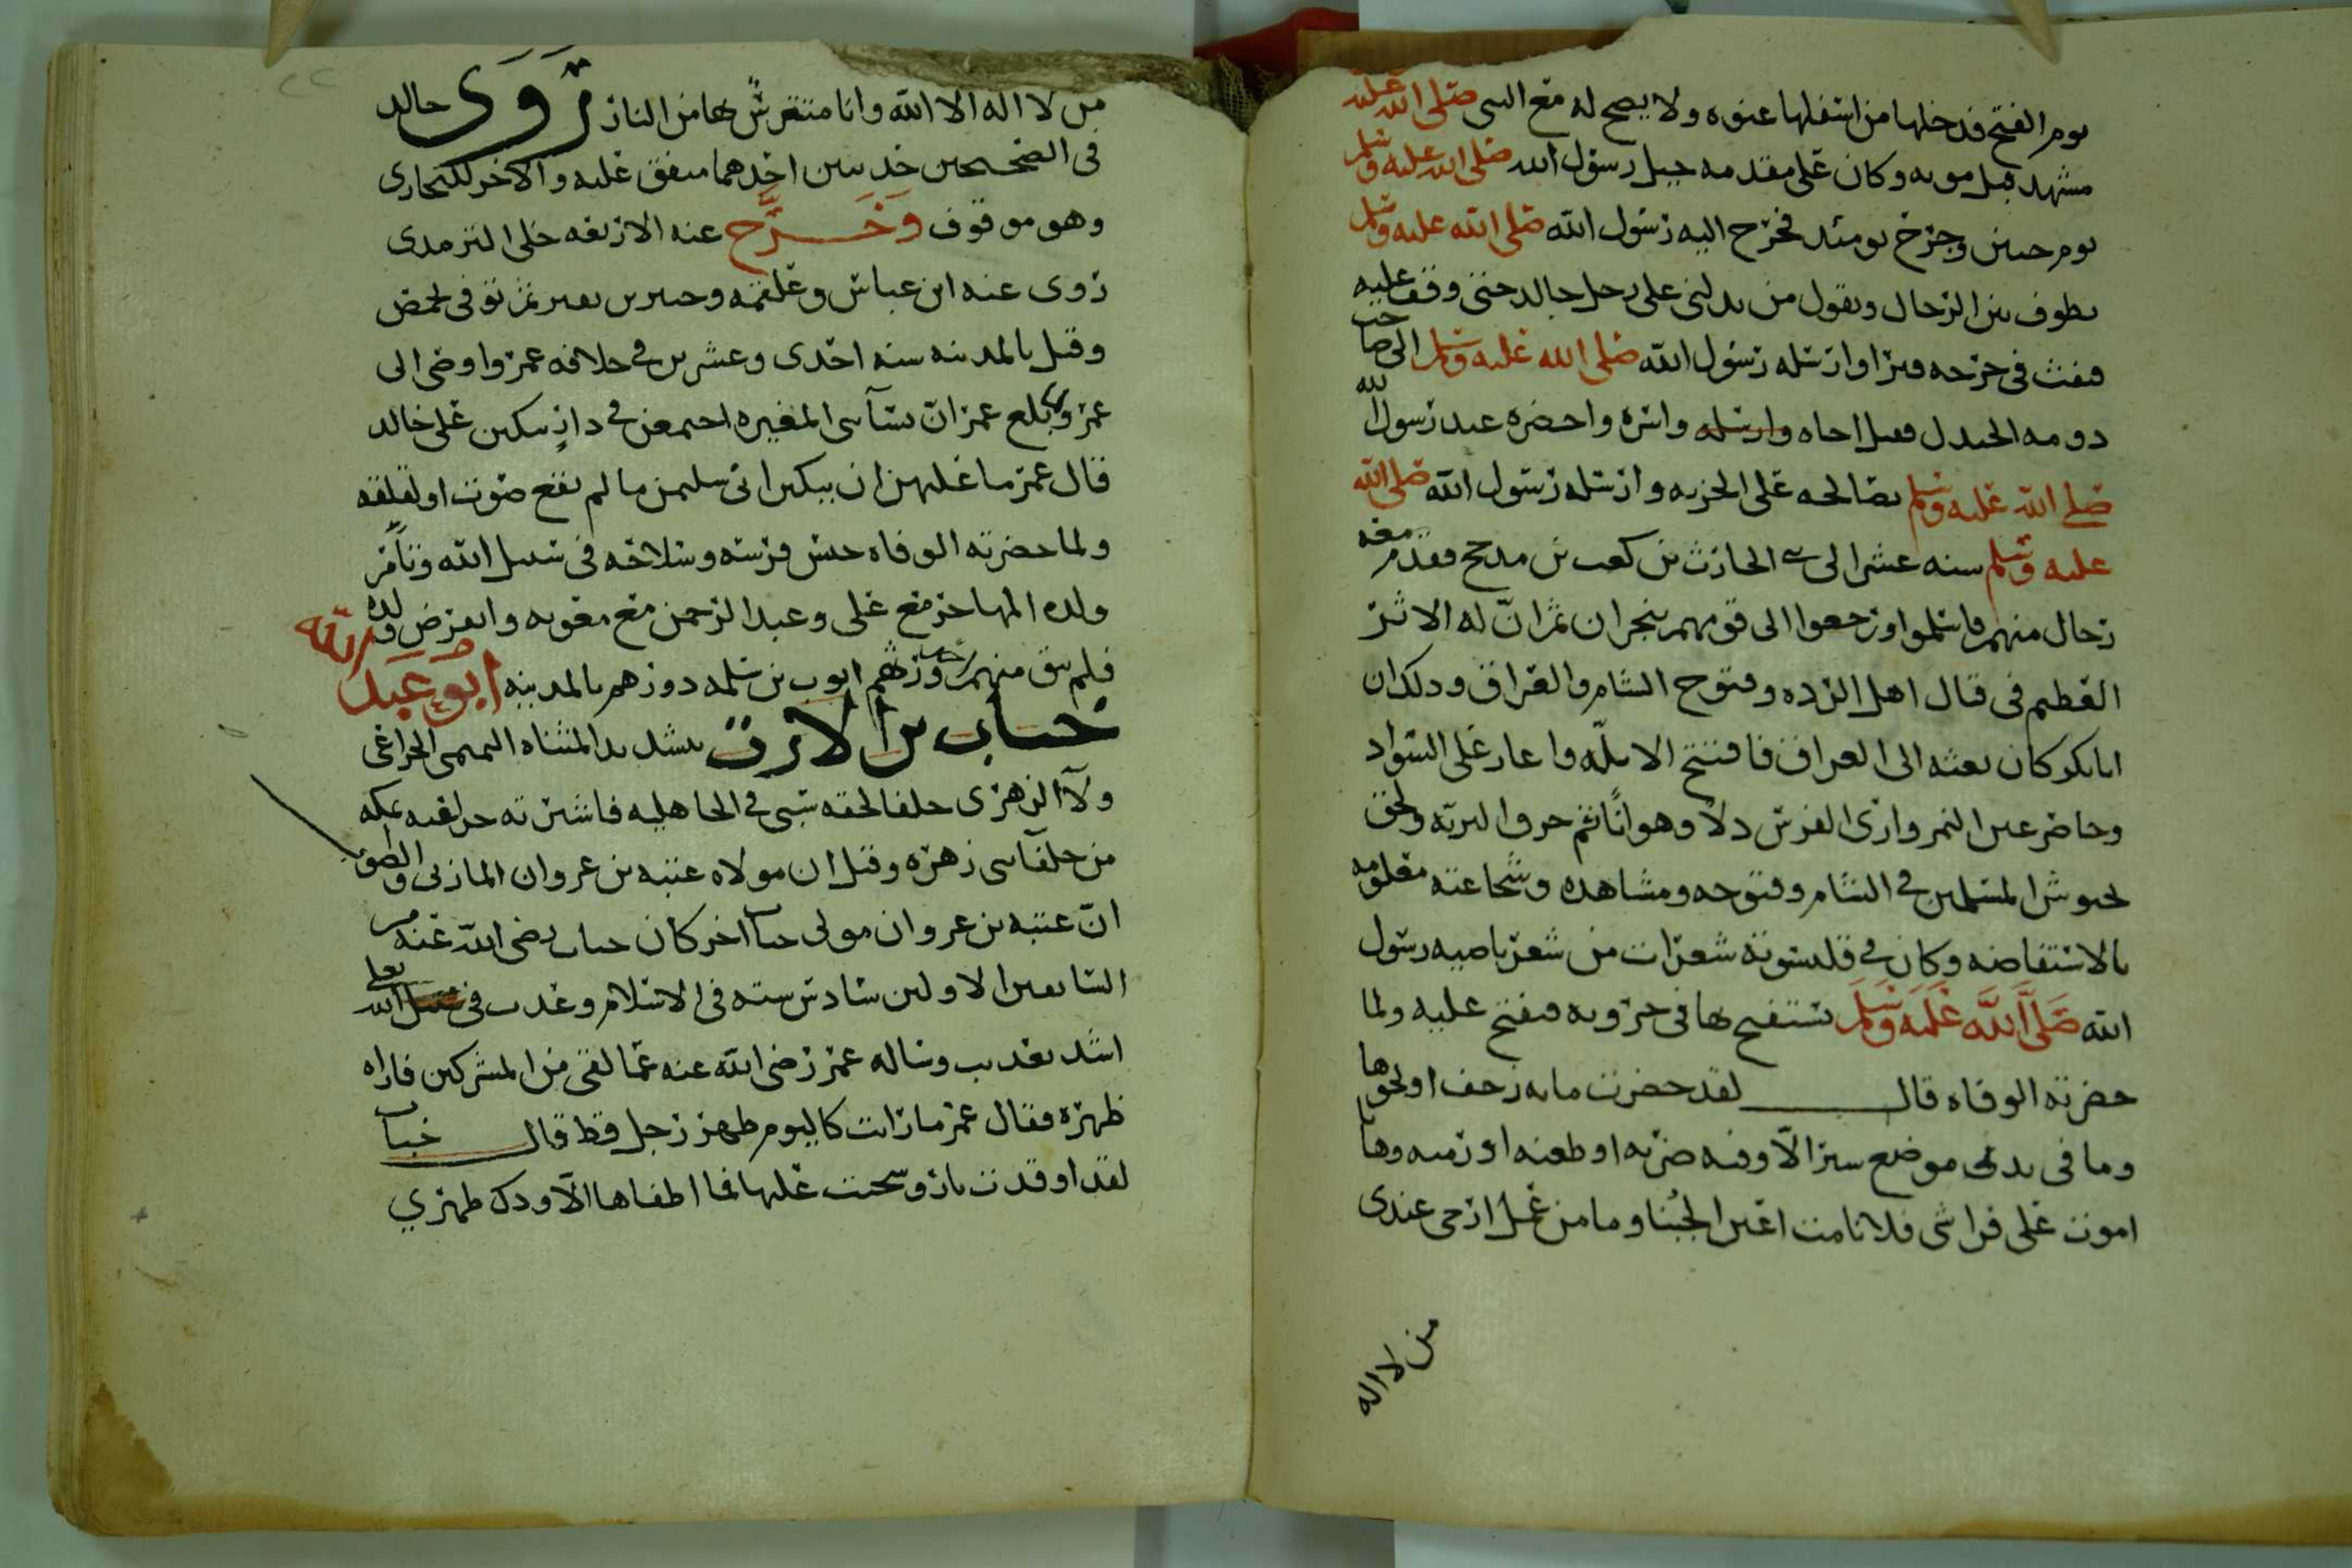 يوم الفتح فدخلها من اسفلها عنوه ولا يصح له مع النبي صلى الله عليه
مشهد قبل موته وكان على مقدمه جيل رسول الله صلى الله عليه وسلم
يوم حنين وجرح يومئذ فخرج اليه رسول الله صلى الله عليه وسلم
يطوف بين الرحال ويقول من يدلني على رحل خالد حتى وقف عليه
فنفث في جرحه فبرا وارسله رسول الله صلى الله عليه وسلم الى صاحب
دومه الجندل فقتل اخاه وارسله واسره واحضره عند رسول الله
صلى الله عليه وسلم فصالحه على الجزيه وارسله رسول الله صلى الله
عليه وسلم سنه عشر الى بني الحارث بن كعب بن مدحج فقدم معه
رجال منهم فاسلموا ورجعوا الى قومهم بنجران ثم ان له الاثر
العظيم في قتال اهل الرده وفتوح الشام والعراق وذلك ان
ابابكر كان بعثه الى العراق فافتتح الابله واغار على السواد
وحاصر عين التمر وارى الفرس ذلا وهوانا ثم خرق البريه ولحق
بجيوش المسلمين في الشام وفتوحه ومشاهده وشجاعته معلومه
بالاستفاضه وكان في قلنسوته شعرات من شعر ناصيه رسول
الله صلى الله عليه وسلم يستفتح بها في حروبه فيفتح عليه ولما
حضرته الوفاه قال لقد حضرت مايه زحف او نحوها
وما في بدني موضع شبر الا وفيه ضربه او طعنه او رميه وها انا
اموت على فراشي فلا نامت اعين الجبنا وما من عمل ارجى عندي
من لا اله
من لا اله الا الله وانا متترس بها من النار روى خالد
في الصحيحين حديثين احدهما متفق عليه والاخر للبخاري
وهو موقوف وخرج عنه الاربعه خلى الترمذي
روى عنه ابن عباس وعلقمه وجبير بن نفير ثم توفي بحمص
وقيل بالمدينه سنه احدى وعشرين في خلافه عمر واوصى الى
عمر وبلغ عمر ان نسآ بني المغيره اجتمعن في دار يبكين على خالد
فقال عمر ما عليهن ان يبكين ابى سليمن ما لم نقع صوت او لقلقه
ولما حضرته الوفاه حبس فرسه وسلاحه في سبيل الله وتامر
ولده المهاجر مع علي وعبد الرحمن مع معويه وانقرض ولده
فلم يبق منهم احد وورثهم ايوب بن سلمه دورهم بالمدينه ابو عبد الله
خباب بن الارت بشديد المثناه التميمي الخزاعي
ولآ الزهري حلفا لحقه سبي في الجاهليه فاشترته خزاعيه بمكه
من حلفآ بني زهره وقيل ان مولاه عتبه بن غزوان المازني والصواب
ان عتبه بن غزوان مولى خباب اخر كان خباب رضي الله عنه من
السابقين الاولين سادس سته في الاسلام وعذب في الله تعلى
اشد تعذيب وساله عمر رضي الله عنه عما لقي من المشركين فاراه
ظهره فقال عمر ما رايت كاليوم ظهر رجل قط قال خباب
لقد اوقدت نار وسحبت عليها فما اطفاها الا ودك ظهري